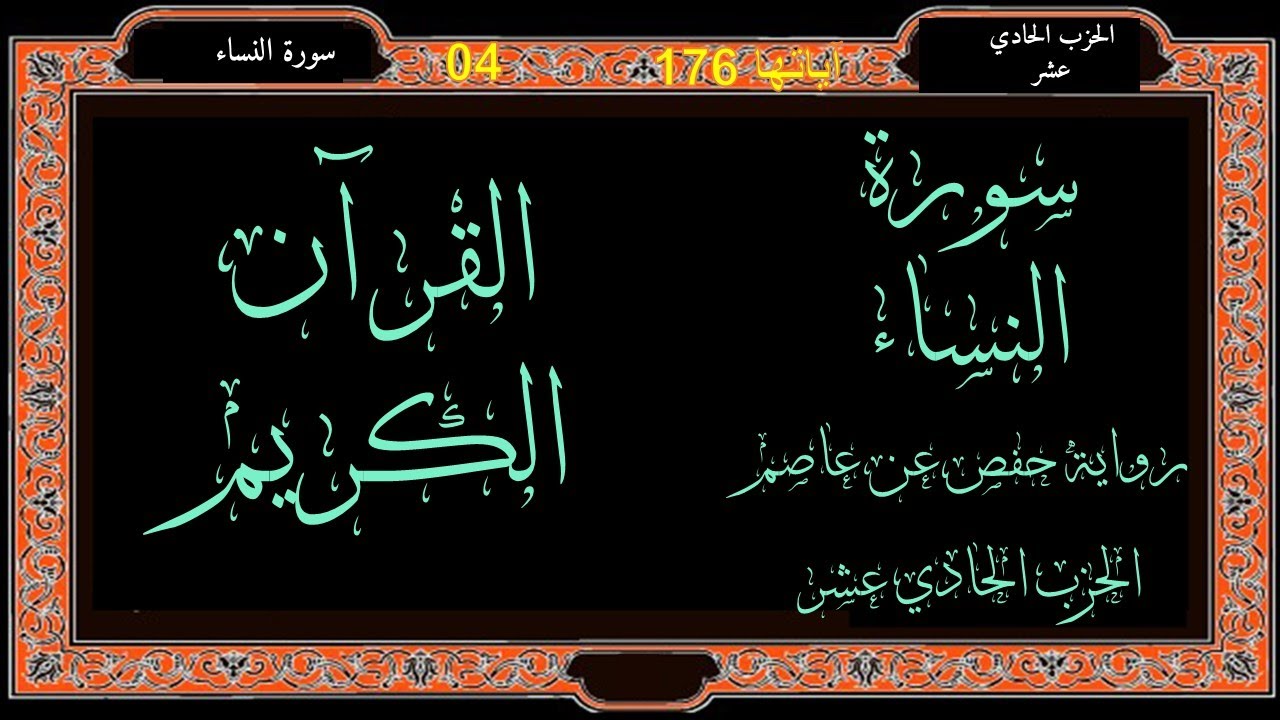 الحزب الحادي
عشر
آياتها 176
04
سورة النساء
سورة
النساء
رواية حفص عن عاصم
الحزب الحادي عشر
القرآن
الكريم